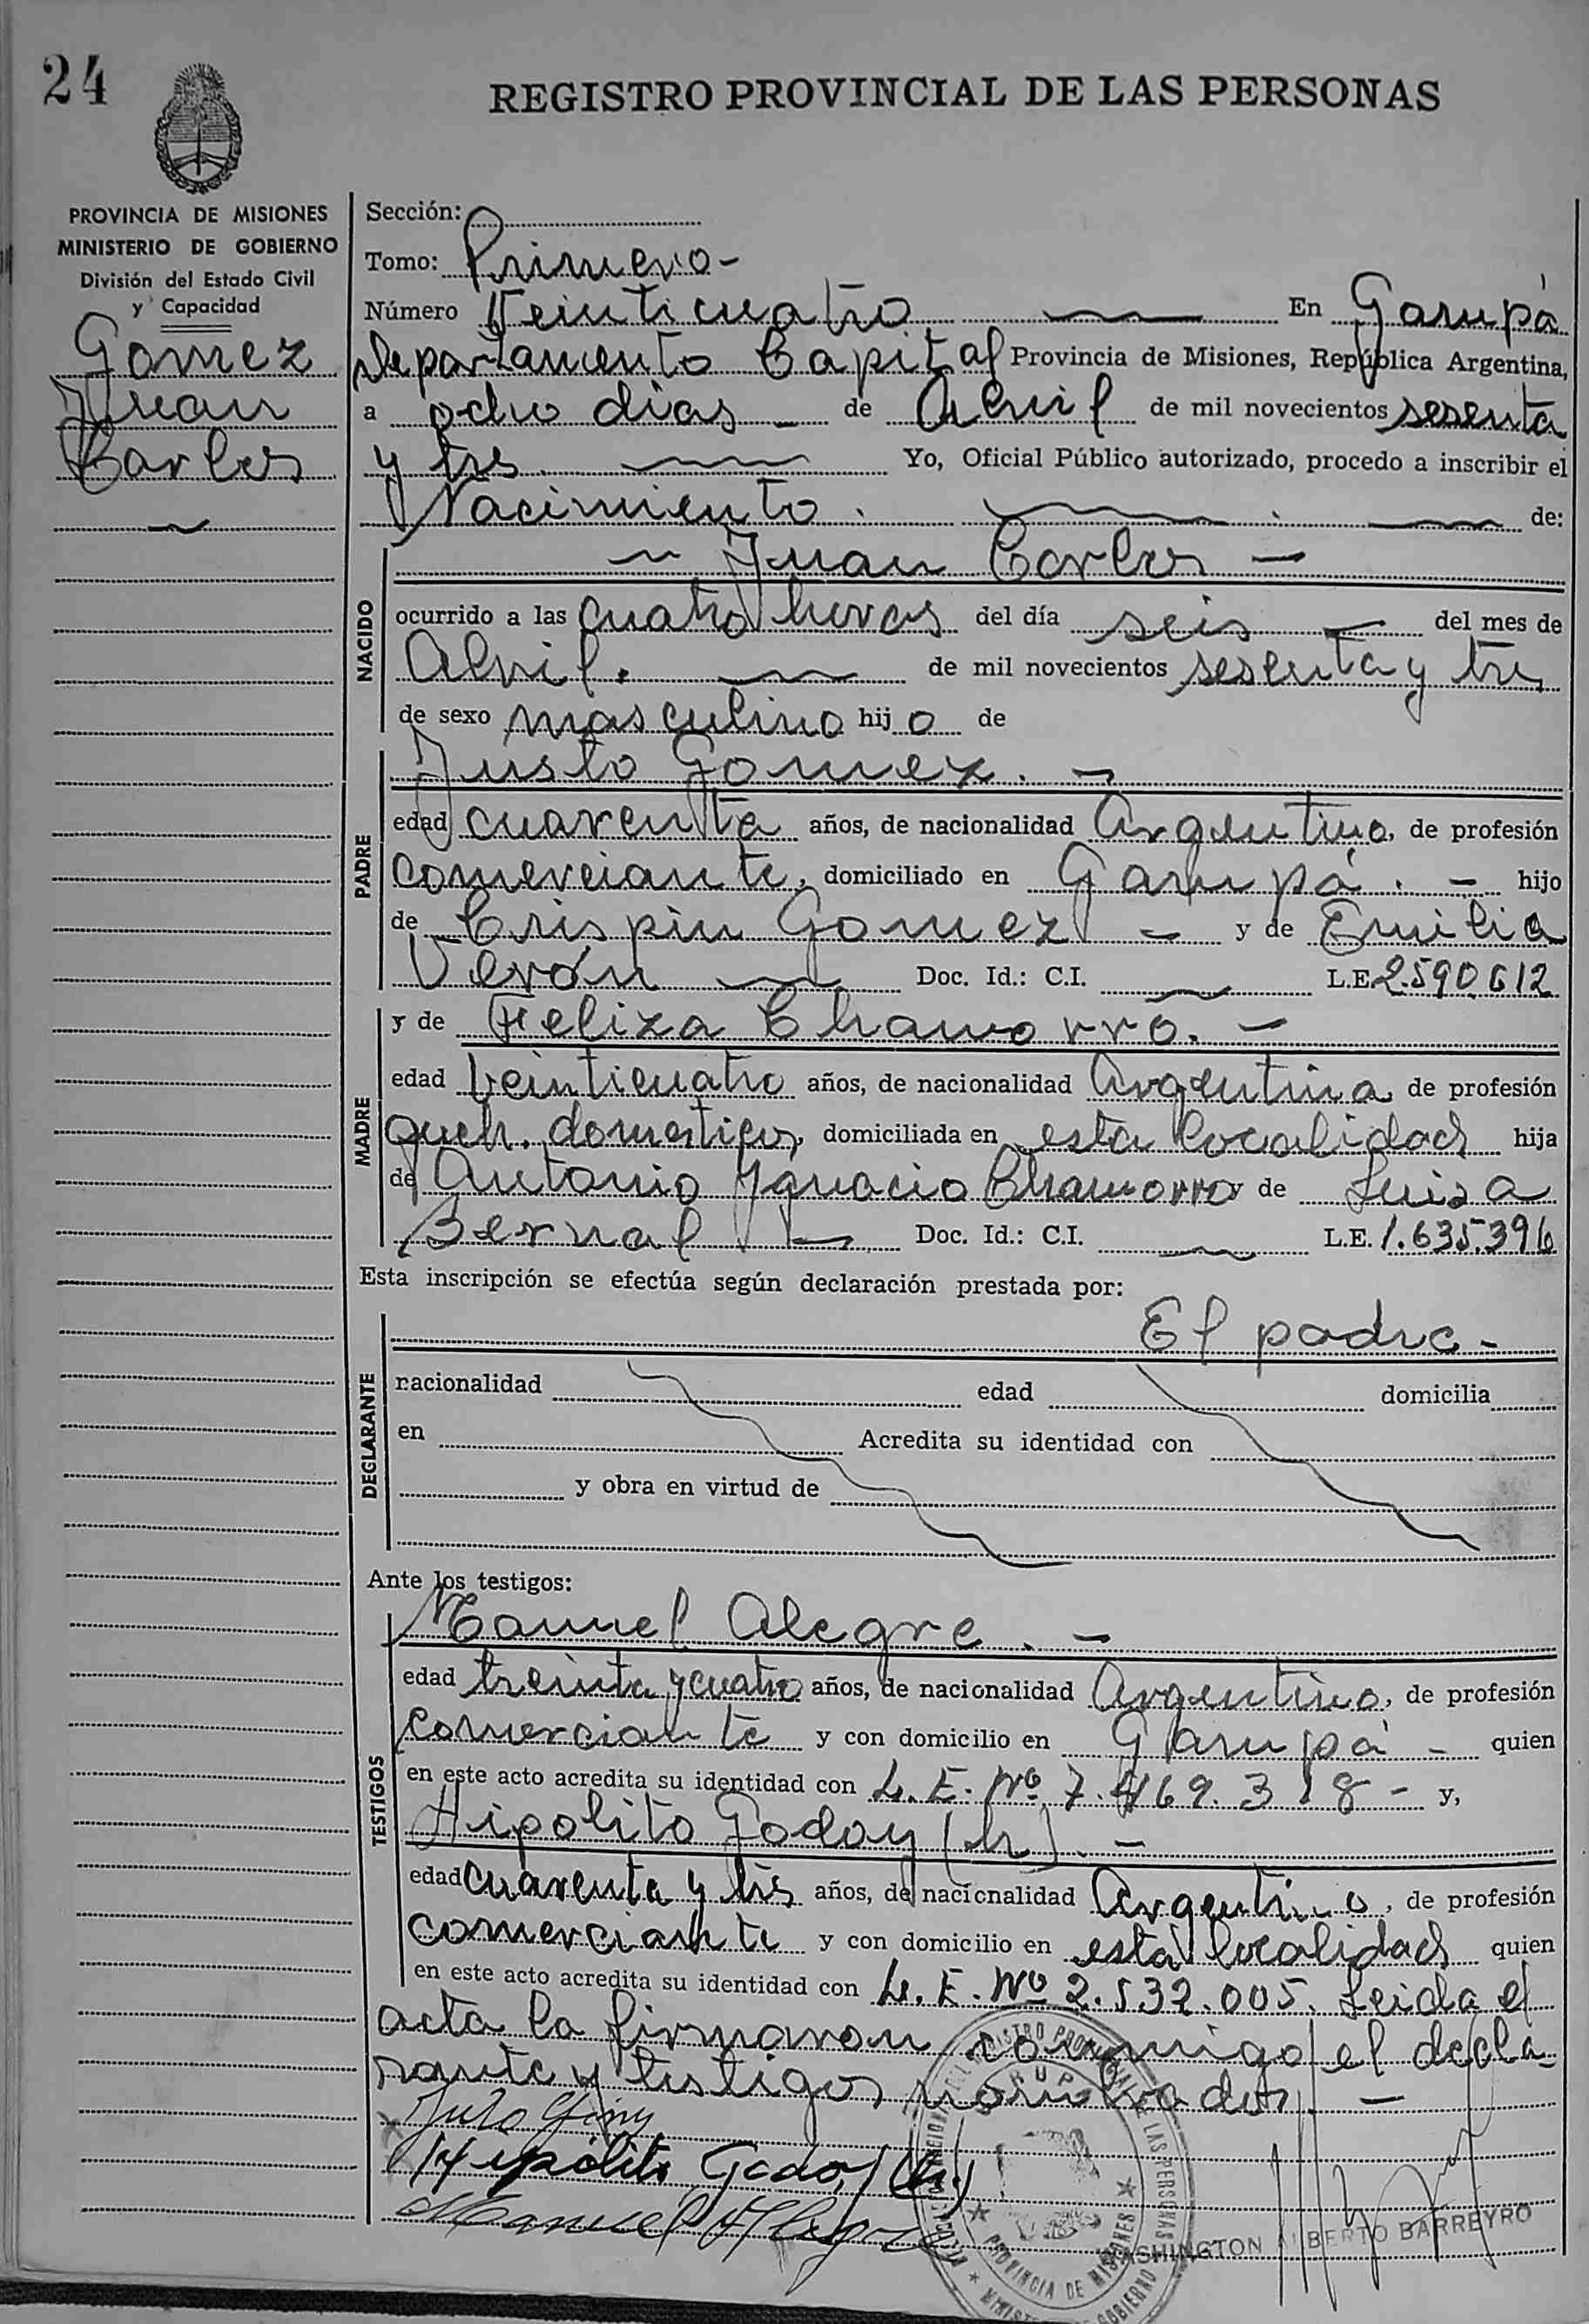 24
REGISTRO PROVINCIAL DE LAS PERSONAS
PROVINCIA DE MISIONES
MINISTERIO DE GOBIERNO
División del Estado Civil
y Capacidad
Gomez
Juan
Carlos
Sección:
Tomo: Primero -
Número Veinticuatro En Garupá
Departamento Capital Provincia de Misiones, República Argentina,
a ocho dias de Abril de mil novecientos sesenta
y tres Yo, Oficial Público autorizado, procedo a inscribir el
Nacimiento. de:
NACIDO
Juan Carlos -
ocurrido a las cuatro horas del día seis del mes de
Abril. de mil novecientos sesenta y tres
de sexo masculino hij o de
PADRE
Justo Gomez. -
edad cuarenta años, de nacionalidad Argentino, de profesión
comerciante, domiciliado en Garupá. - hijo
de Crispin Gomez - y de Emilia
Verón Doc. Id.: C.I. L.E 2.590.612
MADRE
y de Feliza Chamorro. -
edad veinticuatro años, de nacionalidad Argentina, de profesión
queh. domesticos, domiciliada en esta localidad hija
de Antonio Ignacio Chamorro y de Luisa
Bernal Doc. Id.: C.I. L.E. 1.635.396
Esta inscripción se efectúa según declaración prestada por:
DECLARANTE
El padre -
nacionalidad edad domicilia
en Acredita su identidad con
y obra en virtud de
Ante los testigos:
TESTIGOS
Manuel Alegre. -
edad treinta y cuatro años, de nacionalidad Argentino, de profesión
comerciante y con domicilio en Garupá - quien
en este acto acredita su identidad con L. E. Nº 7.469.318 - y,
Hipolito Godoy (h). -
edad cuarenta y tres años, de nacionalidad Argentino, de profesión
comerciante y con domicilio en esta localidad quien
en este acto acredita su identidad con L. E. Nº 2.532.005. Leida el
acta la firmaron conmigo el decla-
rante y testigos nombrados. -
Hipólito Godoy (h.)
Manuel Alegre
WASHINGTON ALBERTO BARREYRO
PROVINCIA DE MISIONES